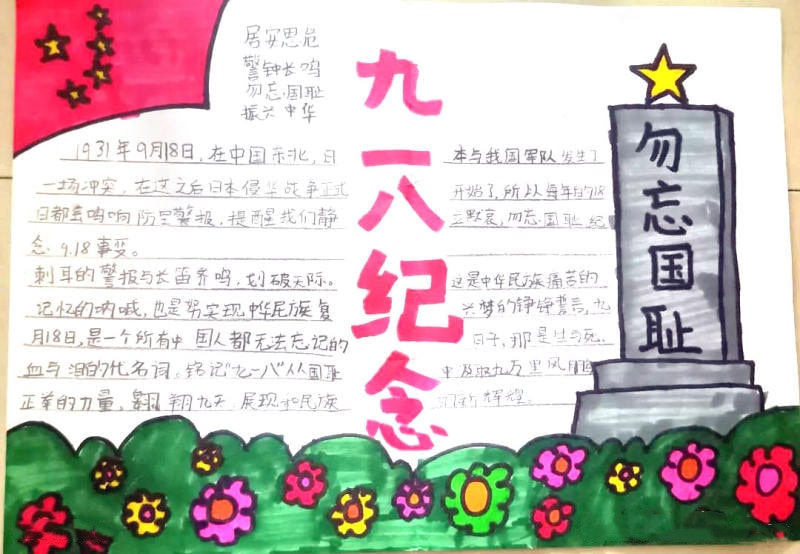 居安思危
警钟长鸣
勿忘国耻
振兴中华
九一八纪念
1931年9月18日，在中国东北，日本与我国军队发生了
一场冲突，在这之后日本侵华战争正式开始了，所以每年的918
日都会鸣响防空警报，提醒我们静立默哀，勿忘国耻纪
念 9.18事变。
刺耳的警报与长笛齐鸣，划破天际。这是中华民族痛苦的
记忆的呐喊，也是努实现中华民族复兴梦的铮铮誓言，九
月18日，是一个所有中国人都无法忘记的日子，那是生与死.
血与泪的代名词。铭记"九一八"从国耻中汲取九万里风鹏
正举的力量，翱翔九天，展现和民族的新辉煌.
勿忘国耻